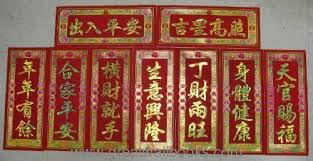 出入平安
吉星高照
年年有餘
合家平安
橫財就手
生意興隆
丁財兩旺
身體健康
天官賜福